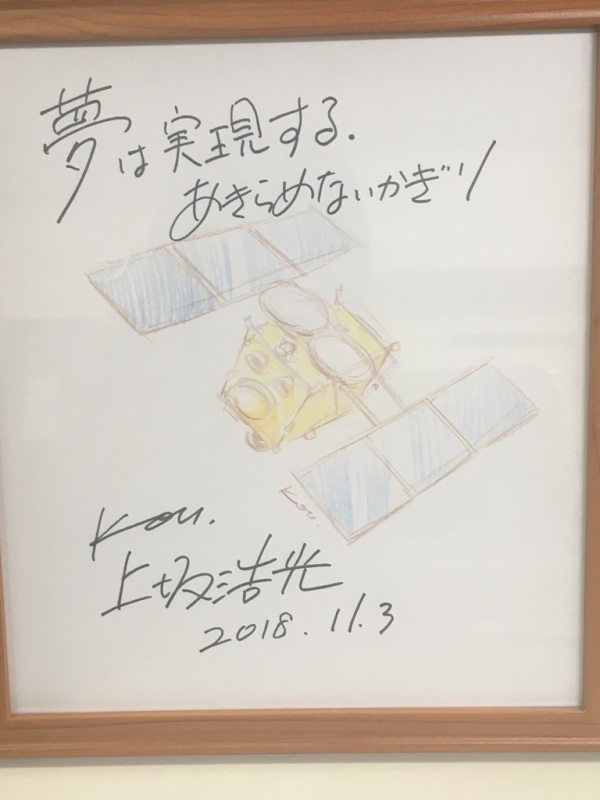 夢は実現する.
あきらめないかぎり
Kou.
Kou.
上坂浩光
2018.11.3